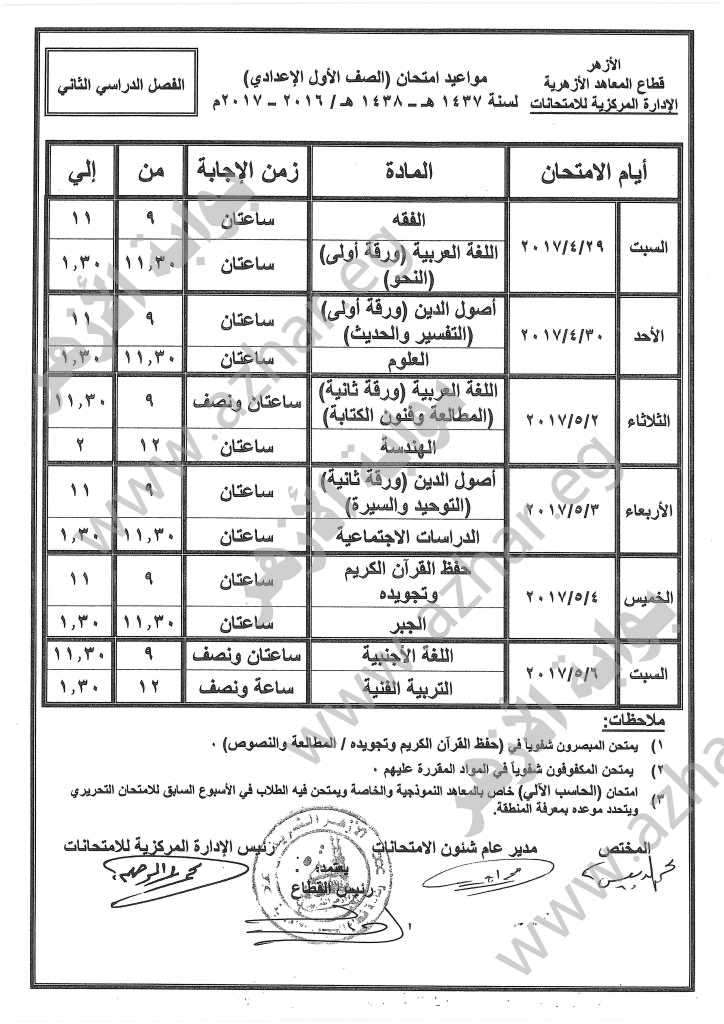 الأزهر
قطاع المعاهد الأزهرية
الإدارة المركزية للامتحانات
مواعيد امتحان (الصف الأول الإعدادي)
لسنة ١٤٣٧ هـ – ١٤٣٨ هـ / ٢٠١٦ – ٢٠١٧م
الفصل الدراسي الثاني
أيام الامتحان المادة زمن الإجابة من إلي
السبت ٢٠١٧/٤/٢٩ الفقه ساعتان ٩ ١١
اللغة العربية (ورقة أولى) (النحو) ساعتان ١١,٣٠ ١,٣٠
الأحد ٢٠١٧/٤/٣٠ أصول الدين (ورقة أولى) (التفسير والحديث) ساعتان ٩ ١١
العلوم ساعتان ١١,٣٠ ١,٣٠
الثلاثاء ٢٠١٧/٥/٢ اللغة العربية (ورقة ثانية) (المطالعة وفنون الكتابة) ساعتان ونصف ٩ ١١,٣٠
الهندسة ساعتان ١٢ ٢
الأربعاء ٢٠١٧/٥/٣ أصول الدين (ورقة ثانية) (التوحيد والسيرة) ساعتان ٩ ١١
الدراسات الاجتماعية ساعتان ١١,٣٠ ١,٣٠
الخميس ٢٠١٧/٥/٤ حفظ القرآن الكريم وتجويده ساعتان ٩ ١١
الجبر ساعتان ١١,٣٠ ١,٣٠
السبت ٢٠١٧/٥/٦ اللغة الأجنبية ساعتان ونصف ٩ ١١,٣٠
التربية الفنية ساعة ونصف ١٢ ١,٣٠
ملاحظات:
١) يمتحن المبصرون شفوياً في (حفظ القرآن الكريم وتجويده / المطالعة والنصوص) ٠
٢) يمتحن المكفوفون شفوياً في المواد المقررة عليهم ٠
٣) امتحان (الحاسب الآلي) خاص بالمعاهد النموذجية والخاصة ويمتحن فيه الطلاب في الأسبوع السابق للامتحان التحريري
ويتحدد موعده بمعرفة المنطقة.
المختص مدير عام شئون الامتحانات رئيس الإدارة المركزية للامتحانات
يعتمد؛
رئيس القطاع
بوابة الأزهر
www.azhar.eg
بوابة الأزهر
www.azhar.eg
بوابة الأزهر
www.azhar.eg